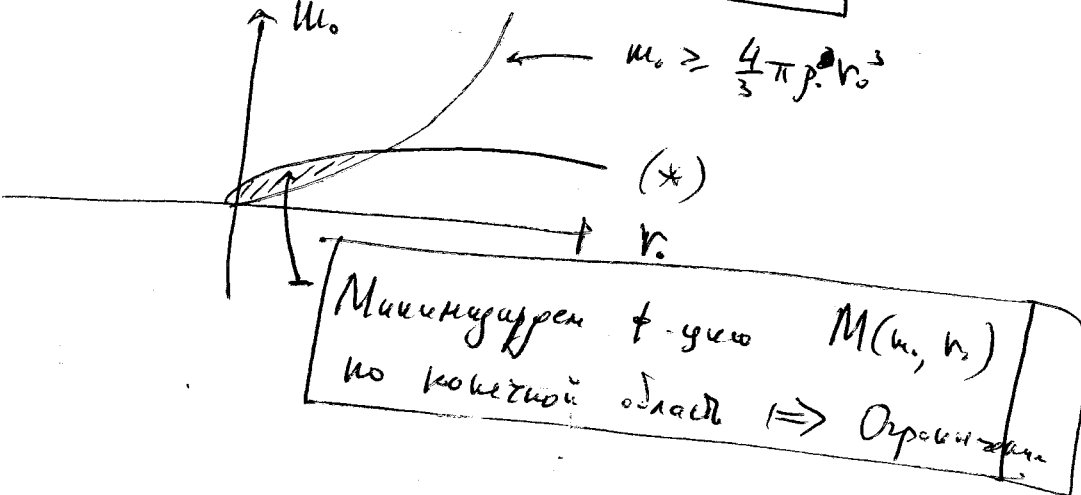 m₀
m₀ ≥ 4/3 π ρ₀ r₀³
(*)
r₀
Минимизируем ф-цию M(m₀, r₀)
по конечной области ⇒ Ограничение